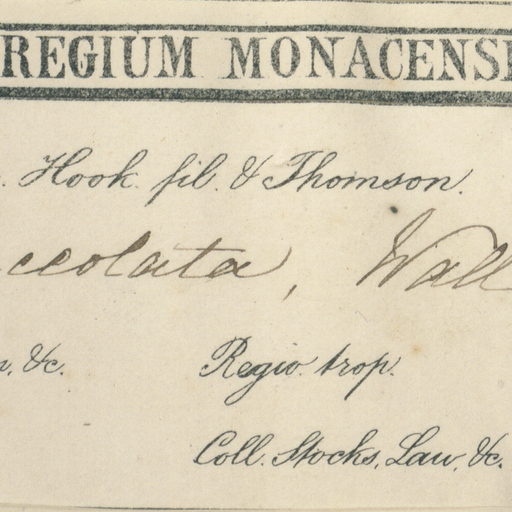 REGIUM MONACENSE
. Hook. fil. & Thomson.
ceolata, Wall
, &c. Regio trop.
Coll. Stocks, Law, &c.